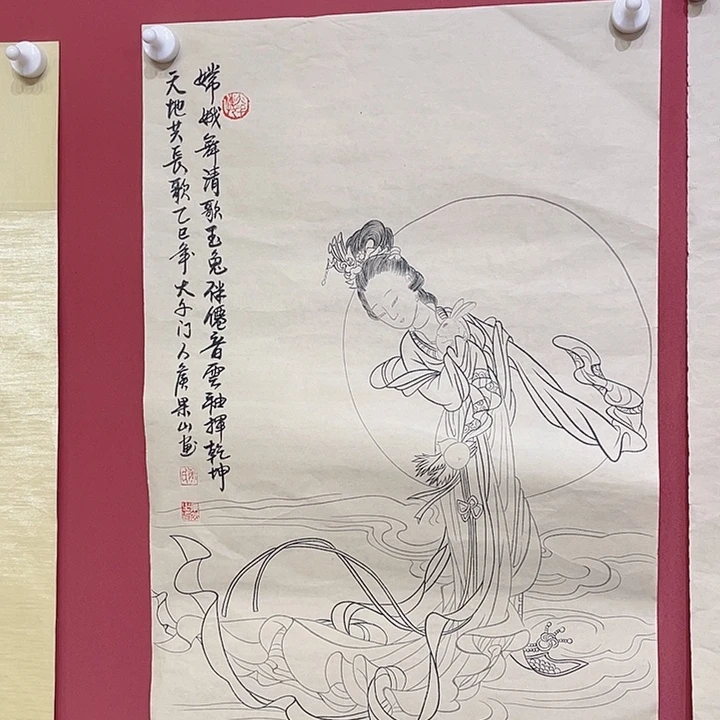 嫦娥舞清歌玉兔伴僊音雲袖揮乾坤
天地共長歌乙巳年大千门人果山画